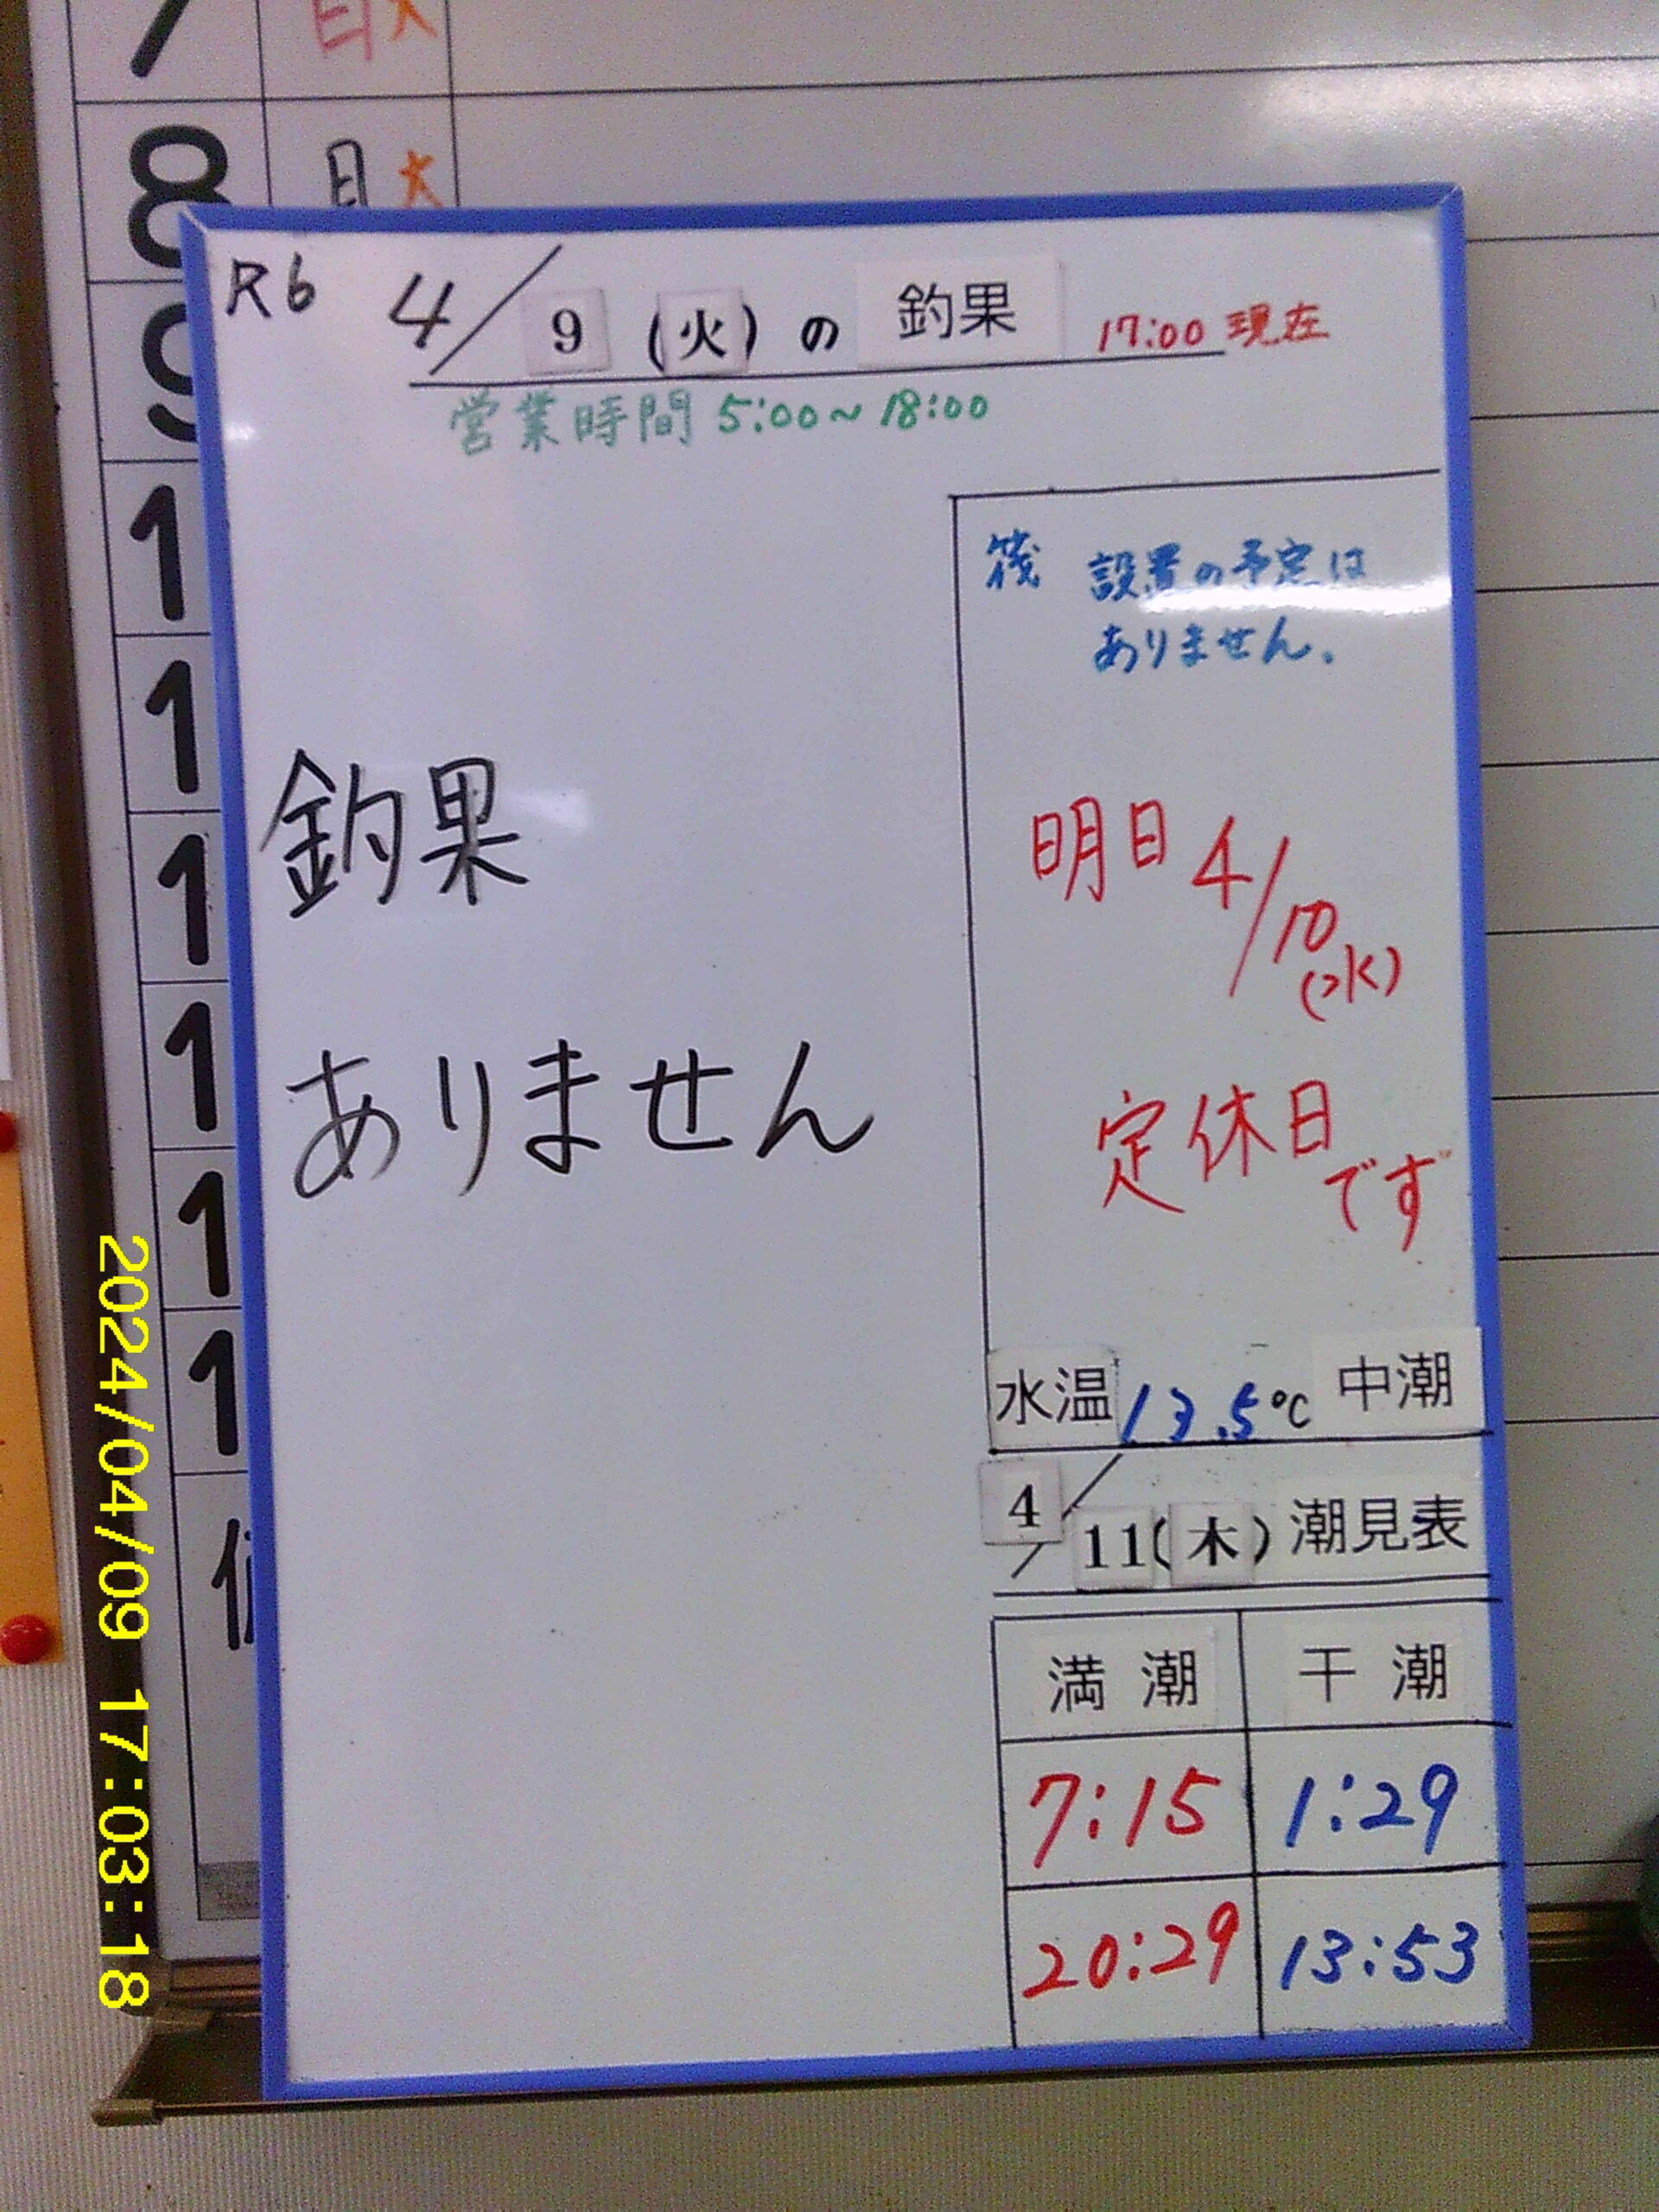 7 日 大
8 月 大
9
R6 4/9(火)の釣果 17:00現在
営業時間 5:00~18:00
筏 設置の予定は
ありません。
釣果
ありません
明日4/10(水)
定休日です
水温 13.5℃ 中潮
4/11(木)潮見表
満潮 干潮
7:15 1:29
20:29 13:53
1
1
1
1
1
1
2024/04/09 17:03:18